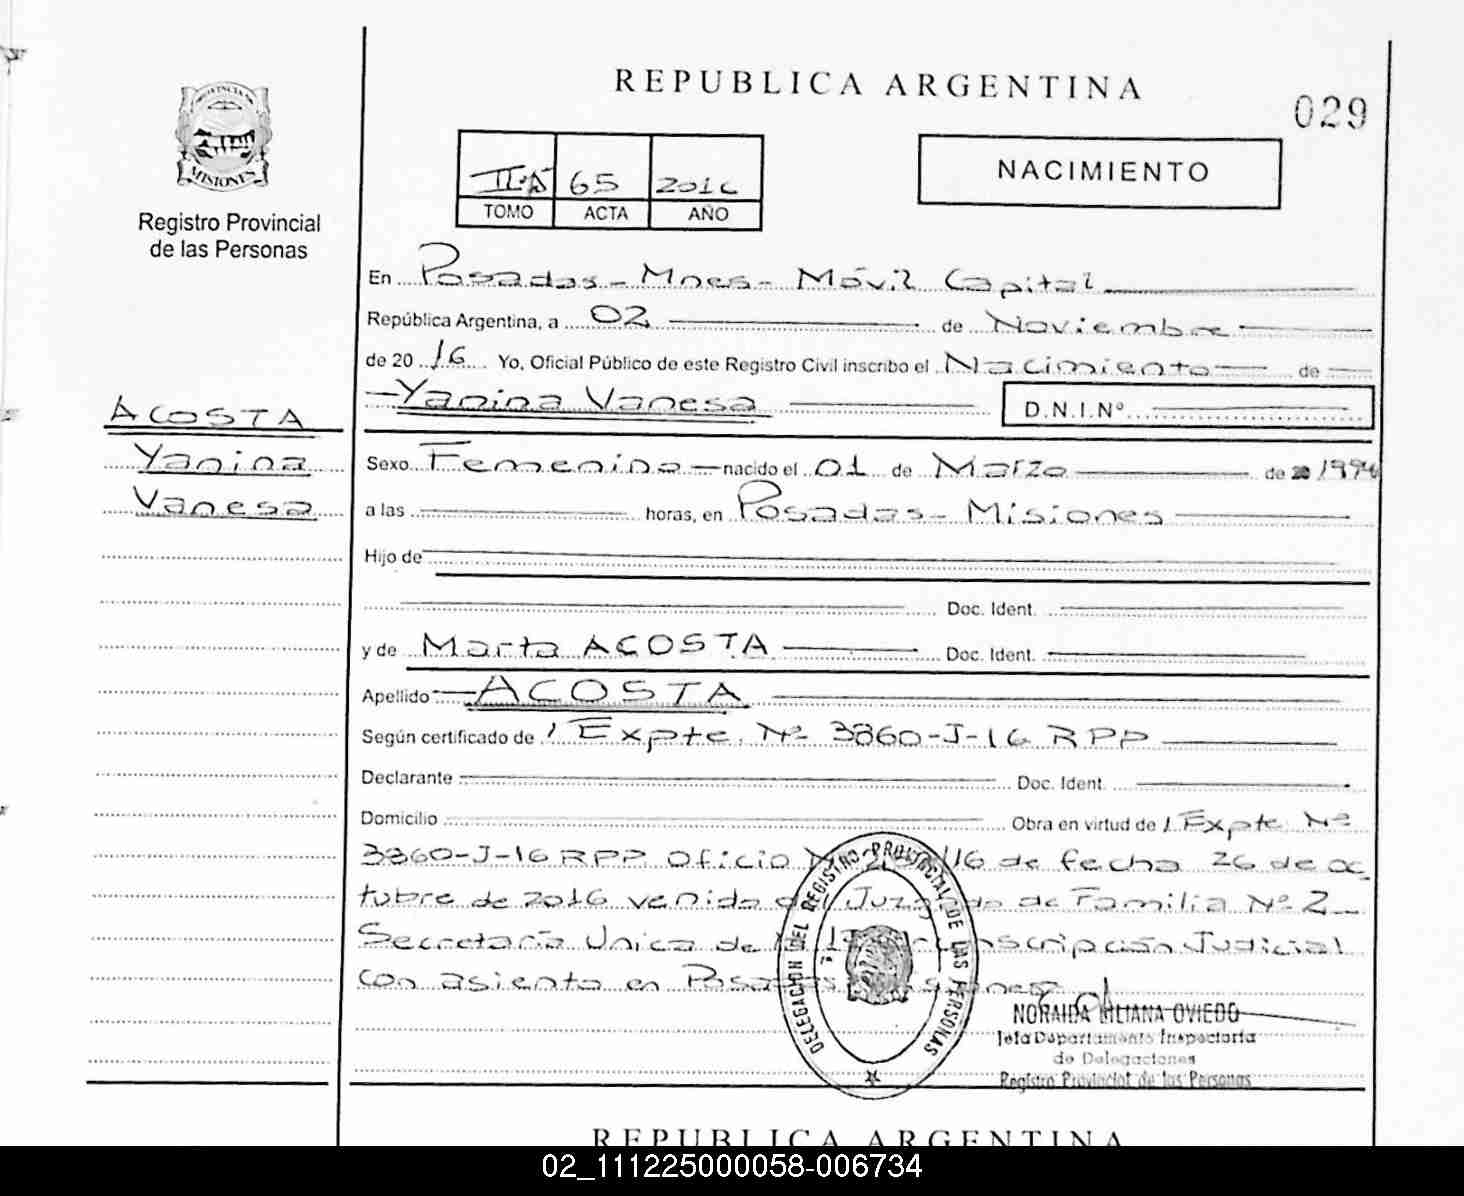 REPUBLICA ARGENTINA
029
PROVINCIA
MISIONES
Registro Provincial
de las Personas
65 2016
TOMO ACTA AÑO
NACIMIENTO
En Posadas - Mnes - Móvil Capital
República Argentina, a 02 de Noviembre
de 20 16 Yo, Oficial Público de este Registro Civil inscribo el Nacimiento de
Yanina Vanesa D.N.I.Nº
ACOSTA
Yanina
Vanesa
Sexo Femenino nacido el 01 de Marzo de 199
a las horas, en Posadas - Misiones
Hijo de
Doc. Ident.
y de Marta ACOSTA Doc. Ident.
Apellido ACOSTA
Según certificado de Expte. Nº 3860-J-16 RPP
Declarante Doc. Ident.
Domicilio Obra en virtud de Expte Nº
3860-J-16 RPP Oficio 16 de fecha 26 de oc
tubre de 2016 venido Juzgado de Familia Nº 2
Secretaría Unica de la Judicial
con asiento en Posadas
DELEGACION DEL REGISTRO PROVINCIAL DE LAS PERSONAS
NORAIDA LILIANA OVIEDO
Jefa Departamento Inspectoria
de Delegaciones
Registro Provincial de las Personas
REPUBLICA ARGENTINA
02_111225000058-006734